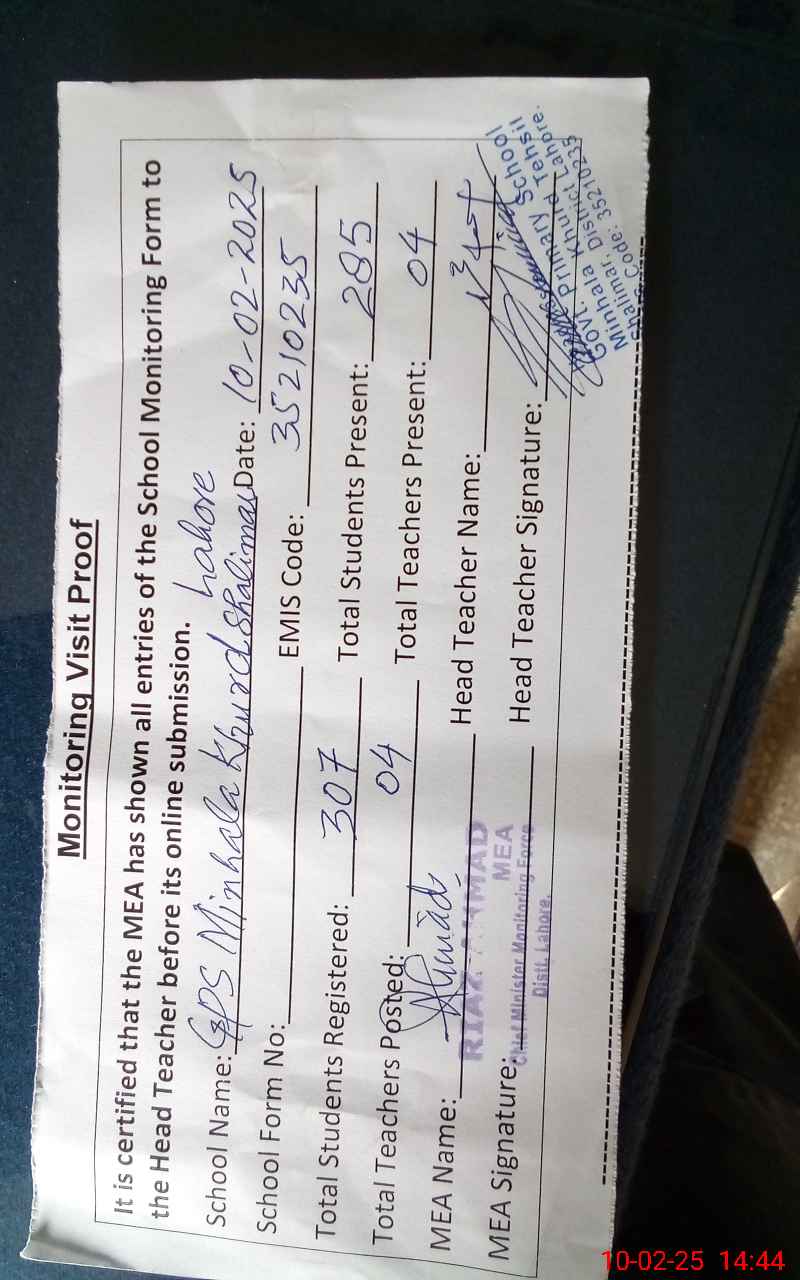 Monitoring Visit Proof
It is certified that the MEA has shown all entries of the School Monitoring Form to
the Head Teacher before its online submission.
School Name: GPS Minhala Khurd Shalimar Lahore Date: 10-02-2025
School Form No: EMIS Code: 35210235
Total Students Registered: 307 Total Students Present: 285
Total Teachers Posted: 04 Total Teachers Present: 04
MEA Name: Head Teacher Name:
MEA Signature: Head Teacher Signature:
RIAZ AHMAD
MEA
Chief Minister Monitoring Force
Distt. Lahore.
Govt. Primary School
Minhala Khurd Tehsil
Shalimar, District Lahore.
Code: 35210235
10-02-25 14:44